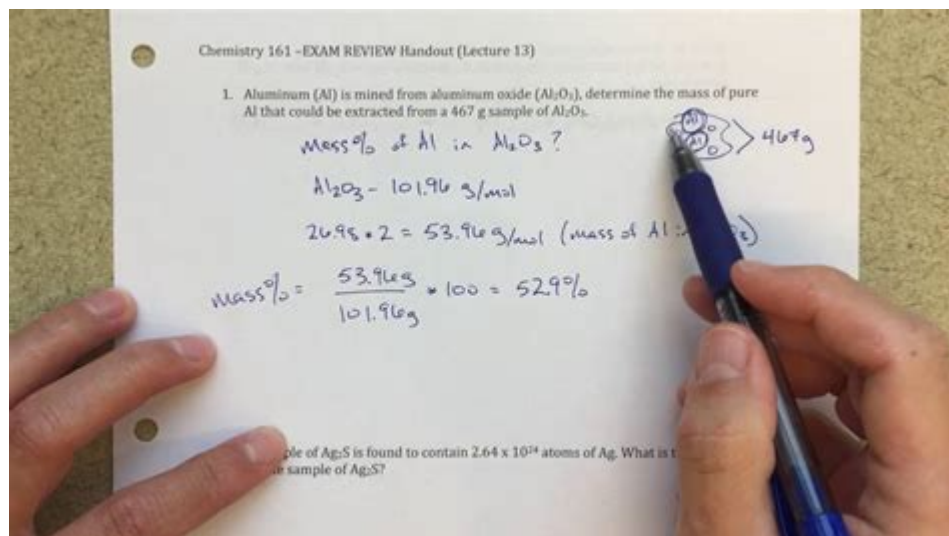 Chemistry 161 –EXAM REVIEW Handout (Lecture 13)
1. Aluminum (Al) is mined from aluminum oxide (Al₂O₃), determine the mass of pure
Al that could be extracted from a 467 g sample of Al₂O₃.
Mass% of Al in Al₂O₃?
Al O
Al O
467g
Al₂O₃ - 101.96 g/mol
26.98 • 2 = 53.96 g/mol (mass of Al
mass% = 53.96g / 101.96g • 100 = 52.9%
of Ag₂S is found to contain 2.64 x 10²⁴ atoms of Ag. What is
sample of Ag₂S?